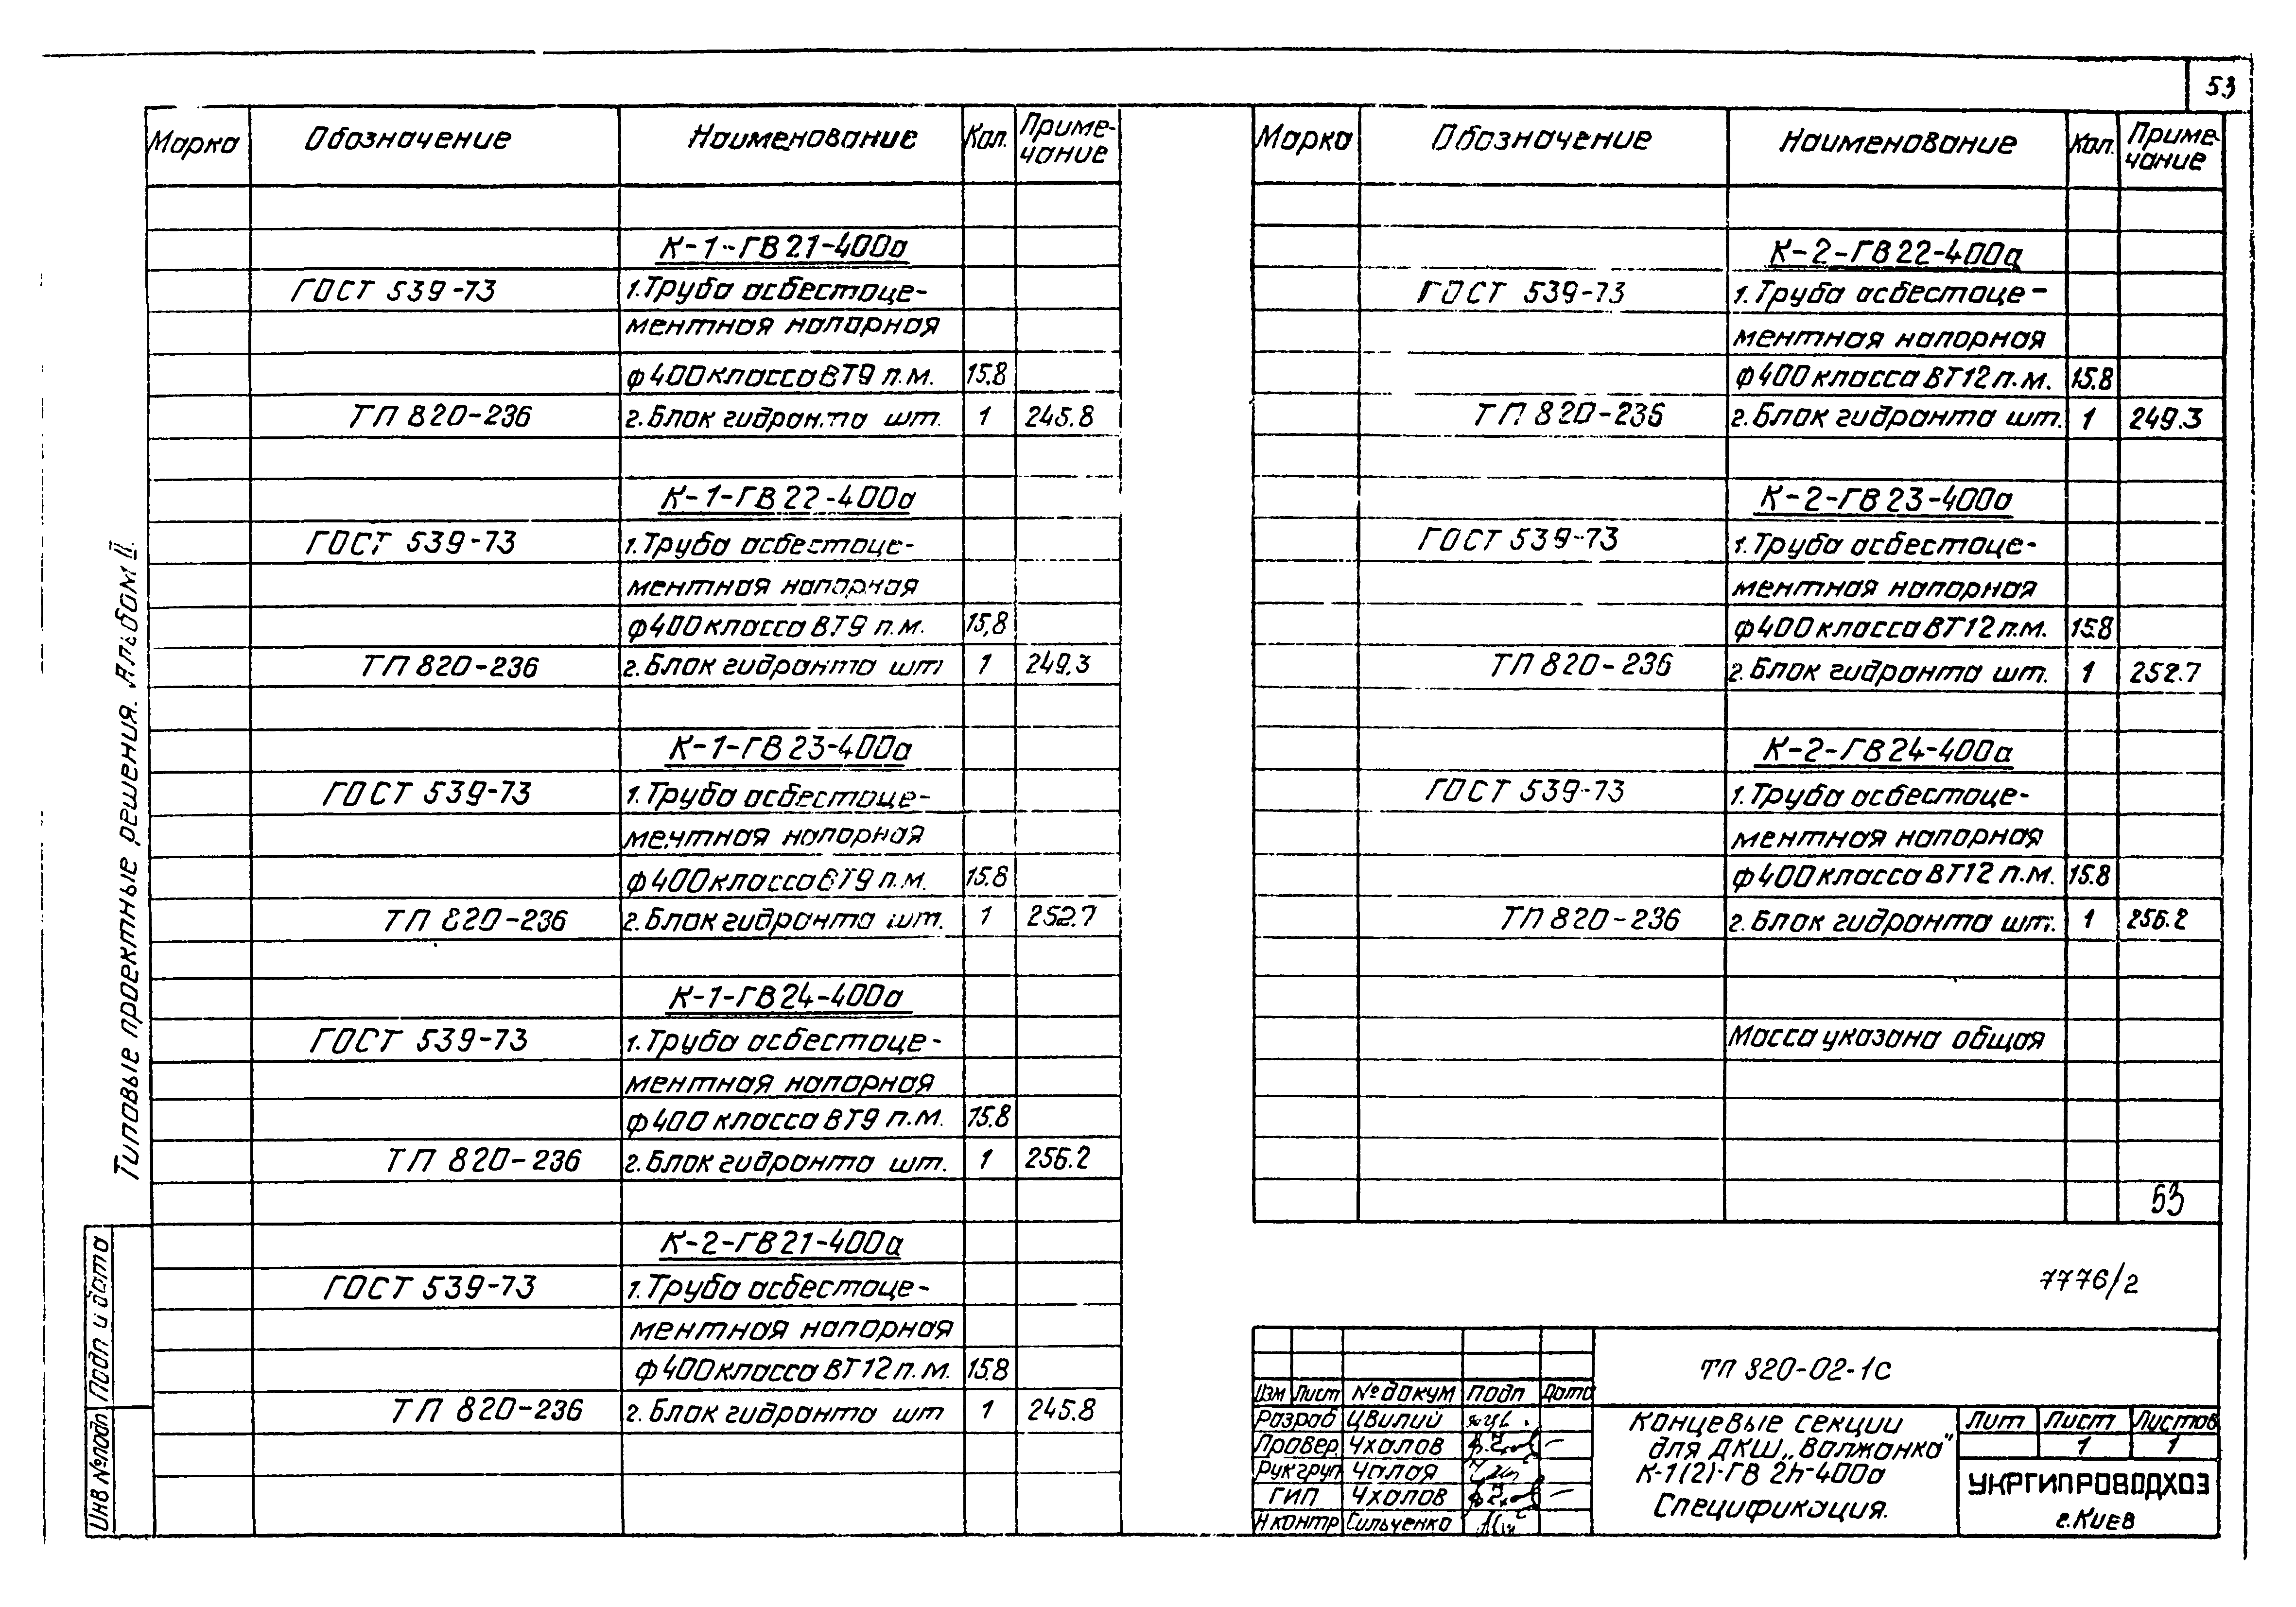 53
Марка Обозначение Наименование Кол. Приме-
чание
К-1-ГВ21-400а
ГОСТ 539-73 1. Труба асбестоце-
ментная напорная
ф400 класса ВТ9 п.м. 15.8
ТП 820-236 2. Блок гидранта шт. 1 245.8
К-1-ГВ22-400а
ГОСТ 539-73 1. Труба асбестоце-
ментная напорная
ф400 класса ВТ9 п.м. 15,8
ТП 820-236 2. Блок гидранта шт 1 249.3
К-1-ГВ23-400а
ГОСТ 539-73 1. Труба асбестоце-
ментная напорная
ф400 класса ВТ9 п.м. 15.8
ТП 820-236 2. Блок гидранта шт. 1 252.7
К-1-ГВ24-400а
ГОСТ 539-73 1. Труба асбестоце-
ментная напорная
ф400 класса ВТ9 п.м. 15.8
ТП 820-236 2. Блок гидранта шт. 1 256.2
К-2-ГВ21-400а
ГОСТ 539-73 1. Труба асбестоце-
ментная напорная
ф400 класса ВТ12 п.м. 15.8
ТП 820-236 2. Блок гидранта шт 1 245.8
Марка Обозначение Наименование Кол. Приме-
чание
К-2-ГВ22-400а
ГОСТ 539-73 1. Труба асбестоце-
ментная напорная
ф400 класса ВТ12 п.м. 15.8
ТП 820-236 2. Блок гидранта шт. 1 249.3
К-2-ГВ23-400а
ГОСТ 539-73 1. Труба асбестоце-
ментная напорная
ф400 класса ВТ12 п.м. 15.8
ТП 820-236 2. Блок гидранта шт. 1 252.7
К-2-ГВ24-400а
ГОСТ 539-73 1. Труба асбестоце-
ментная напорная
ф400 класса ВТ12 п.м. 15.8
ТП 820-236 2. Блок гидранта шт. 1 256.2
Масса указана общая
53
7776/2
Типовые проектные решения. Альбом II.
Подп и дата
Инв № подп
ТП 820-02-1С
Изм Лист № докум Подп Дата
Разраб Цвилий
Провер. Чхалов
Рук груп Чалая
ГИП Чхалов
Н контр Сильченко
Концевые секции
для ДКШ „Волжанка"
К-1(2)-ГВ 2h-400а
Спецификация.
Лит Лист Листов
1 1
УКРГИПРОВОДХОЗ
г. Киев